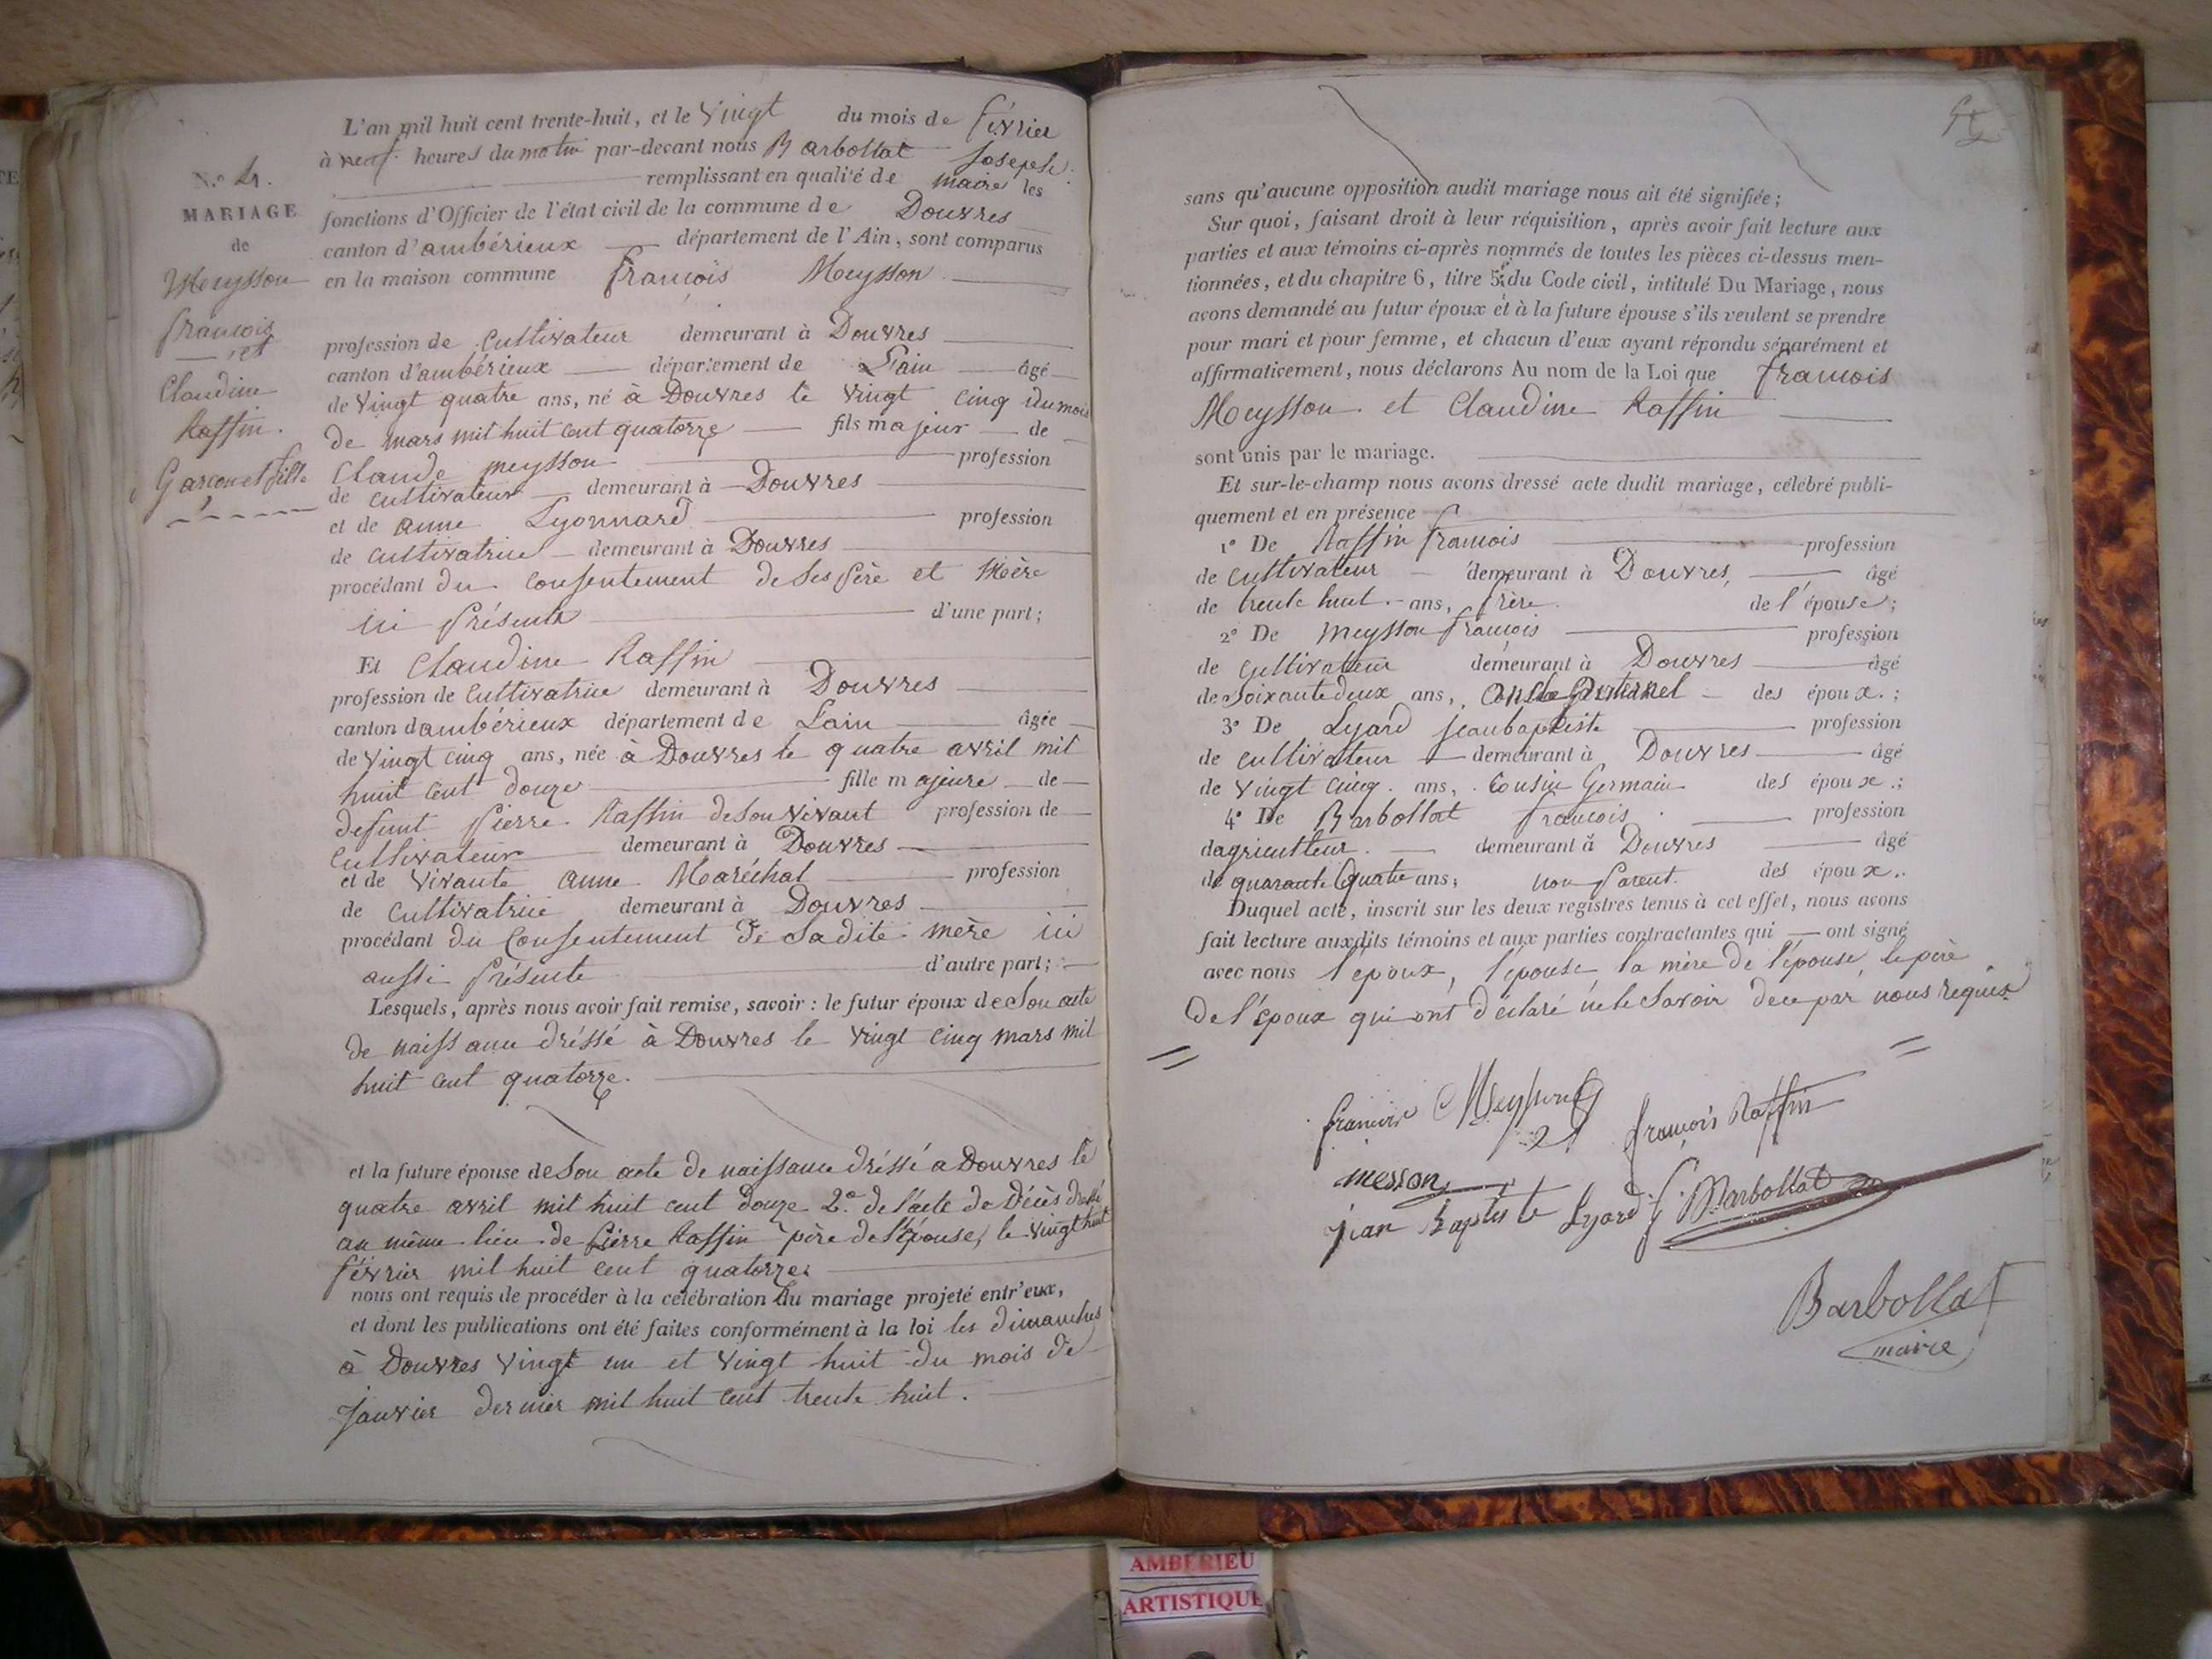 L'an mil huit cent trente-huit, et le Vingt du mois de février
à neuf heures du matin par-devant nous Barbollat Joseph
remplissant en qualité de maire les
fonctions d'Officier de l'état civil de la commune de Douvres
canton d'ambérieux département de l'Ain, sont comparus
en la maison commune françois Meysson
profession de Cultivateur demeurant à Douvres
canton d'ambérieux département de L'ain âgé
de Vingt quatre ans, né à Douvres le Vingt cinq du mois
de mars mil huit cent quatorze fils majeur de
Claude meysson profession
de cultivateur demeurant à Douvres
et de anne Lyonnard profession
de cultivatrice demeurant à Douvres
procédant du Consentement de Ses père et Mère
ici Présents d'une part;
Et Claudine Raffin
profession de Cultivatrice demeurant à Douvres
canton d'ambérieux département de Lain âgée
de Vingt cinq ans, née à Douvres le quatre avril mil
huit cent douze fille majeure de
defunt Pierre Raffin de Son Vivant profession de
Cultivateur demeurant à Douvres
et de Vivante anne Maréchal profession
de Cultivatrice demeurant à Douvres
procédant du Consentement de Sadite mère ici
aussi Présente d'autre part;
Lesquels, après nous avoir fait remise, savoir : le futur époux de Son acte
de naissance dréssé à Douvres le Vingt cinq mars mil
huit cent quatorze.
et la future épouse de Son acte de naissance dréssé a Douvres le
quatre avril mil huit cent douze 2.º de l'acte de Décès dréssé
au même lieu de Pierre Raffin père de l'épouse, le Vingt huit
février mil huit cent quatorze.
nous ont requis de procéder à la célébration du mariage projeté entr'eux,
et dont les publications ont été faites conformément à la loi les dimanches
à Douvres Vingt un et Vingt huit du mois de
Janvier dernier mil huit cent trente huit.
N.º 4.
MARIAGE
de
Meysson
françois
et
Claudine
Raffin.
Garçon et fille
sans qu'aucune opposition audit mariage nous ait été signifiée;
Sur quoi, faisant droit à leur réquisition, après avoir fait lecture aux
parties et aux témoins ci-après nommés de toutes les pièces ci-dessus men-
tionnées, et du chapitre 6, titre 5, du Code civil, intitulé Du Mariage, nous
avons demandé au futur époux et à la future épouse s'ils veulent se prendre
pour mari et pour femme, et chacun d'eux ayant répondu séparément et
affirmativement, nous déclarons Au nom de la Loi que françois
Meysson et Claudine Raffin
sont unis par le mariage.
Et sur-le-champ nous avons dressé acte dudit mariage, célébré publi-
quement et en présence
1º De Raffin françois profession
de cultivateur demeurant à Douvres, âgé
de trente huit ans, frère de l'épouse;
2º De meysson françois profession
de Cultivateur demeurant à Douvres âgé
de Soixante deux ans, des époux.;
3º De Lyard jean baptiste profession
de cultivateur demeurant à Douvres âgé
de Vingt cinq. ans, Cousin Germain des époux.;
4º De Barbollat françois profession
d'agriculteur. demeurant à Douvres âgé
de quarante quatre ans; non Parent. des époux..
Duquel acte, inscrit sur les deux registres tenus à cet effet, nous avons
fait lecture auxdits témoins et aux parties contractantes qui ont signé
avec nous l'époux, l'épouse, la mère de l'épouse, le père
de l'époux qui ont déclaré ne le Savoir de ce par nous requis
françois Meysson françois Raffin
messon
jean Baptiste Lyard f. Barbollat
Barbollat
maire
AMBERIEU
ARTISTIQUE